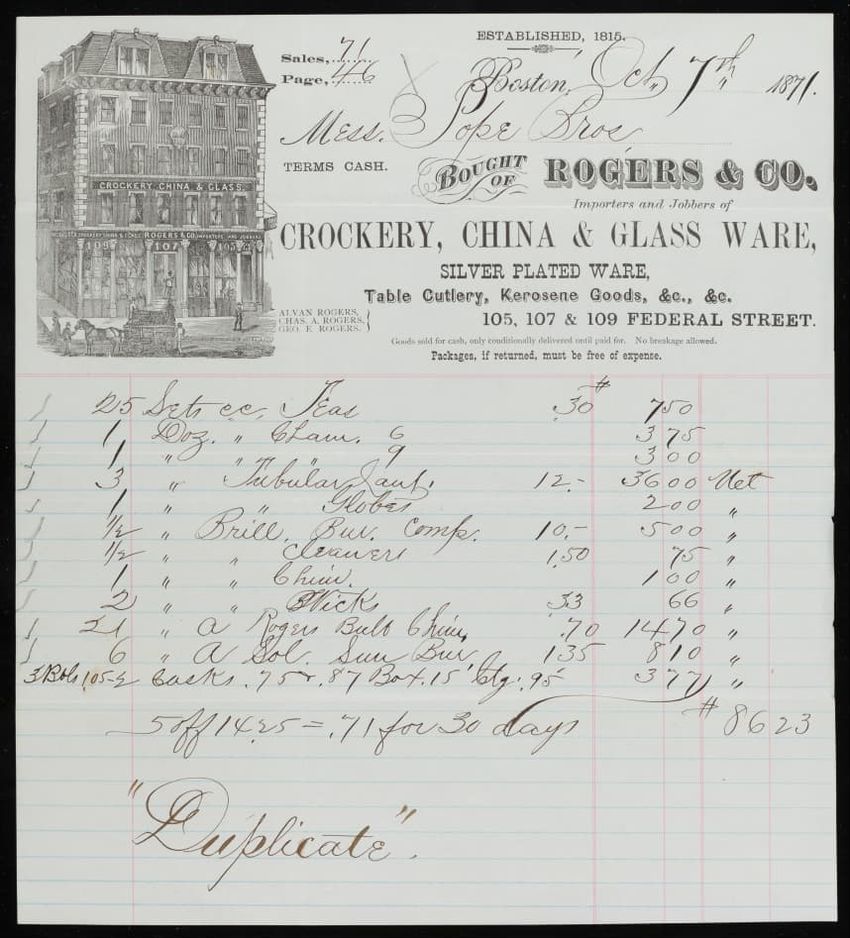 ESTABLISHED, 1815.
Sales, 71
Page, 46
Boston, Oct, 7th 1871.
Mess. Pope Bros,
TERMS CASH.
BOUGHT OF ROGERS & CO.
Importers and Jobbers of
CROCKERY, CHINA & GLASS WARE,
SILVER PLATED WARE,
Table Cutlery, Kerosene Goods, &c., &c.
ALVAN ROGERS,
CHAS. A. ROGERS,
GEO. E. ROGERS.
105, 107 & 109 FEDERAL STREET.
Goods sold for cash, only conditionally delivered until paid for. No breakage allowed.
Packages, if returned, must be free of expense.
CROCKERY CHINA & GLASS
ROGERS & CO.
109 107 105
25 Sets cc. Teas .30 # 7 50
1 Doz. " Cham. 6 3 75
1 " " " 9 3 00
3 " Tubular Lant. 12.- 36 00 Net
1 " Globes 2 00 "
1/2 " Brill. Bur. Comp. 10.- 5 00 "
1/2 " " Cleaners 1.50 75 "
1 " " Chim. 1 00 "
2 " " Wicks 33 66 "
21 " A Rogers Bulb Chim, .70 14 70 "
6 " A Sol. Sun Bur 135 8 10 "
3 Bbls 105-2 Casks .75 .87 Box .15 Ctg. 95 3 77 "
5 off 14.25 = .71 for 30 days # 86 23
"Duplicate".